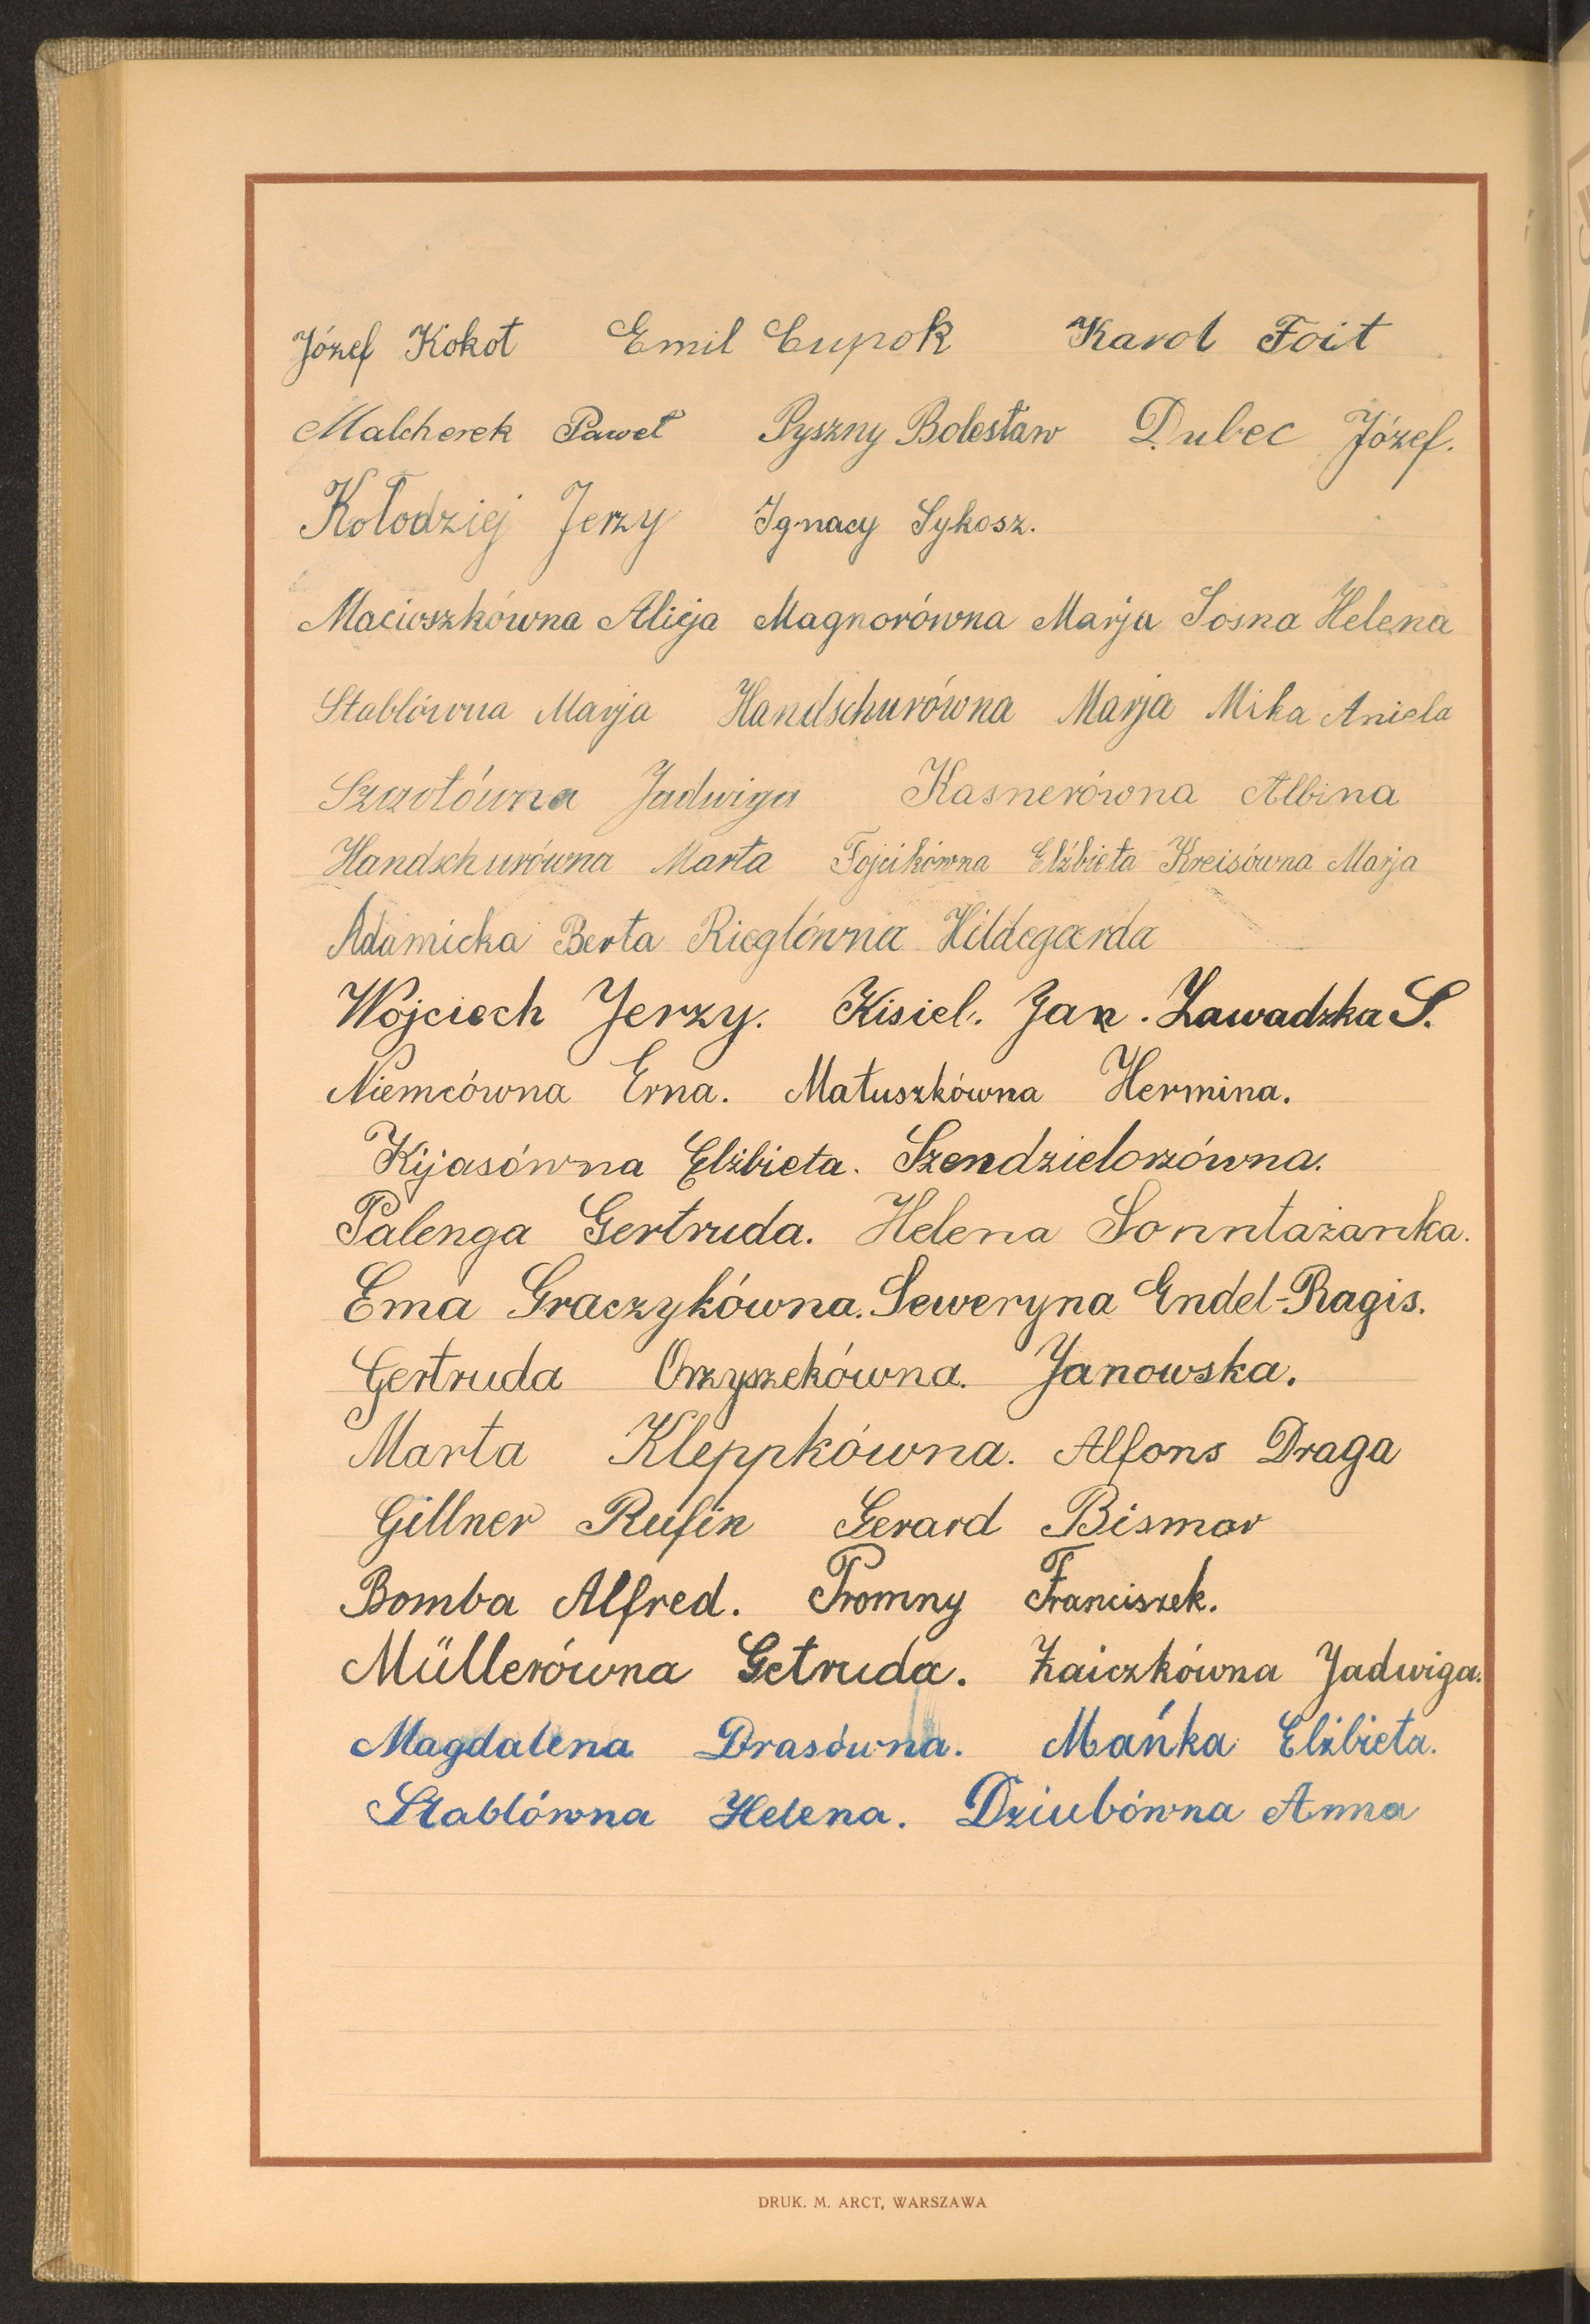 Józef Kokot Emil Cupok Karol Foit
Malcherek Paweł Pyszny Bolesław Dubec Józef.
Kołodziej Jerzy Ignacy Sykosz.
Macioszkówna Alicja Magnorówna Marja Sosna Helena
Stablówna Marja Handschurówna Marja Mika Aniela
Szwotówna Jadwiga Kasnerówna Albina
Handschurówna Marta Fojcikówna Elżbieta Kreisówna Marja
Adamicka Berta Rieglówna Hildegarda
Wojciech Jerzy. Kisiel. Jan. Zawadzka S.
Niemcówna Erna. Matuszkówna Hermina.
Kijasówna Elżbieta. Szendzielorzówna.
Palenga Gertruda. Helena Sonntażanka.
Ema Graczykówna. Seweryna Endel-Ragis.
Gertruda Orzyszekówna. Janowska.
Marta Kleppkówna. Alfons Draga
Gillner Rufin Gerard Bismor
Bomba Alfred. Promny Franciszek.
Müllerówna Getruda. Zaiczkówna Jadwiga.
Magdalena Drasówna. Mańka Elżbieta.
Stablówna Helena. Dziubówna Anna
DRUK. M. ARCT, WARSZAWA